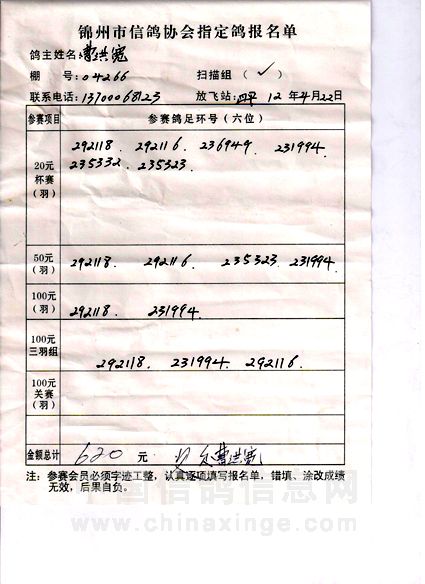 锦州市信鸽协会指定鸽报名单
鸽主姓名:曹洪宽
棚 号:04266 扫描组 (✓)
联系电话:13700068123 放飞站:四平 12年4月22日
参赛项目 参赛鸽足环号(六位)
20元 杯赛 (羽) 292118. 292116. 236949. 231994.
235332. 235323.
50元 (羽) 292118. 292116. 235323. 231994.
100元 (羽) 292118. 231994.
100元 三羽组 292118. 231994. 292116.
100元 关赛 (羽)
金额总计 620 元 曹洪宽
注:参赛会员必须字迹工整,认真逐项填写报名单,错填、涂改成绩
无效,后果自负。
中国信鸽信息网
www.chinaxinge.com